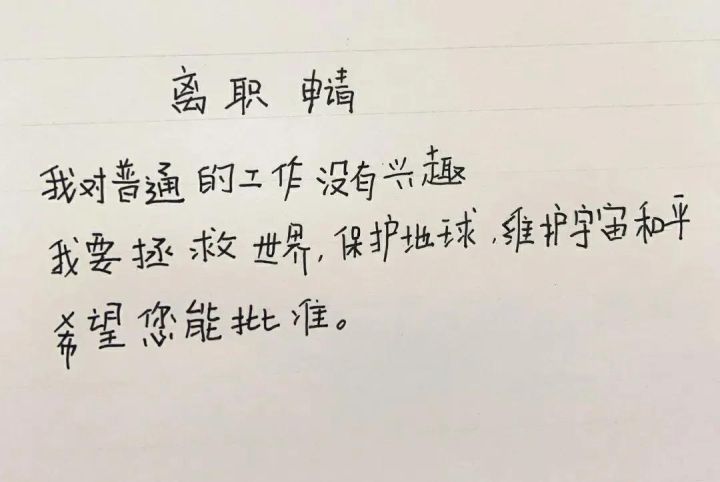 离职申请
我对普通的工作没有兴趣
我要拯救世界,保护地球,维护宇宙和平
希望您能批准。